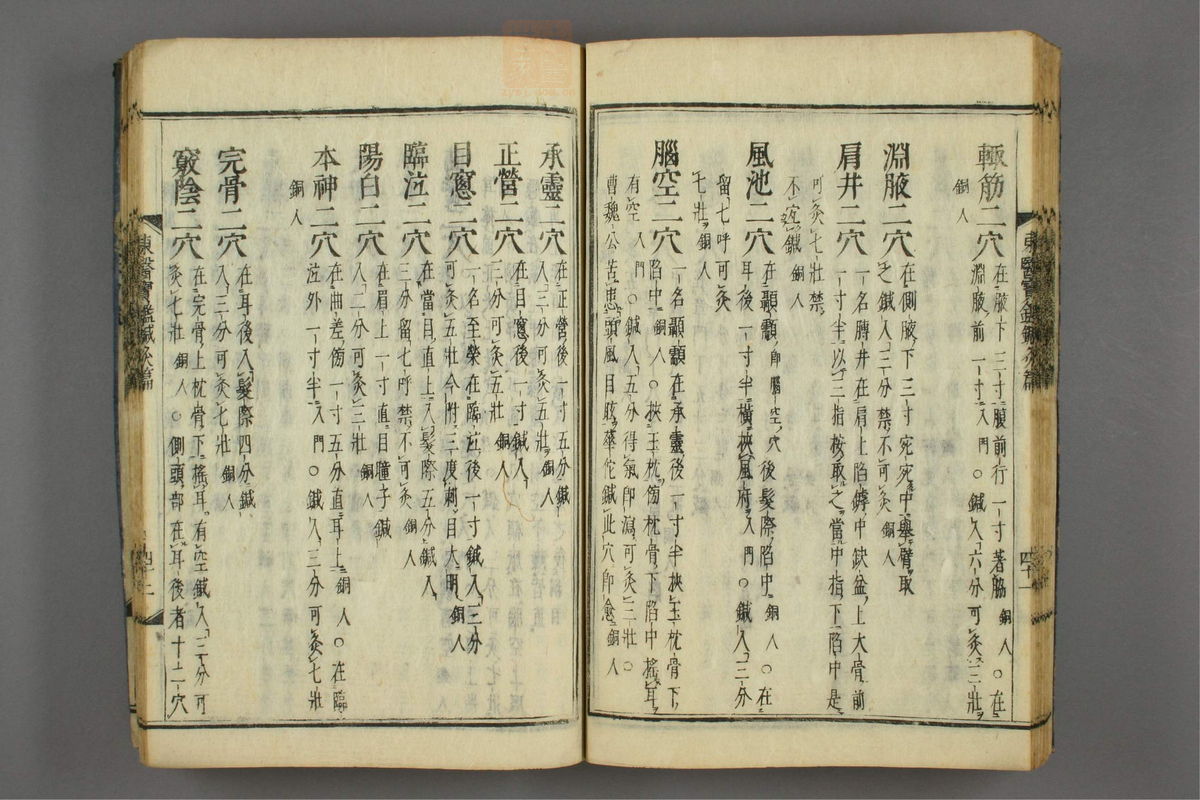 輒筋二穴
在腋下三寸腹前行一寸著脇銅人○在
淵腋前一寸入門○鍼入六分可灸三壯
銅人
淵腋二穴
在側腋下三寸宛宛中擧臂取
之鍼入三分禁不可灸銅人
肩井二穴
一名膊井在肩上陷罅中缺盆上大骨前
一寸半以三指按取之當中指下陷中是
可灸七壯禁
不宜鍼銅人
風池二穴
在顳顬卽腦空穴後髮際陷中銅人○在
耳後一寸半橫挾風府入門○鍼入三分
留七呼可灸
七壯銅人
腦空二穴
一名顳顬在承靈後一寸半挾玉枕骨下
陷中銅人○挾玉枕傍枕骨下陷中搖耳
有空入門○鍼入五分得氣卽瀉可灸三壯○
曹魏公苦患頭風目眩華佗鍼此穴卽愈銅人
東醫寶鑑鍼灸篇
四十二
承靈二穴
在正營後一寸五分鍼
入三分可灸五壯銅人
正營二穴
在目窓後一寸鍼入
三分可灸五壯銅人
目窓二穴
一名至榮在臨泣後一寸鍼入三分
可灸五壯今附三度刺目大明銅人
臨泣二穴
在當目直上入髮際五分鍼入
三分留七呼禁不可灸銅人
陽白二穴
在眉上一寸直目瞳子鍼
入二分可灸三壯銅人
本神二穴
在曲差傍一寸五分直耳上銅人○在臨
泣外一寸半入門○鍼入三分可灸七壯
銅人
完骨二穴
在耳後入髮際四分鍼
入三分可灸七壯銅人
竅陰二穴
在完骨上枕骨下搖耳有空鍼入三分可
灸七壯銅人○側頭部在耳後者十二穴
東醫寶鑑鍼灸篇
四十二